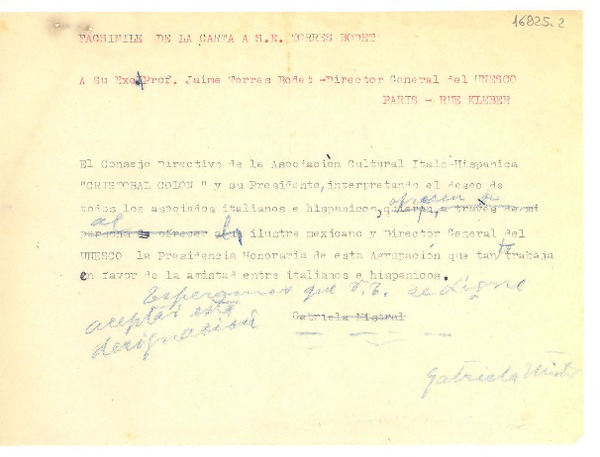 16825.2
FACSIFILE DE LA CARTA A S.E. TORRES BODET
A Su Exc. Prof. Jaime Torres Bodet -Director General del UNESCO
PARIS - RUE KLEBER
El Consejo Directivo de la Asociación Cultural Italo-Hispanica
"CRISTOBAL COLON " y su Presidente, interpretando el deseo de
ofrecen a
todos los asociados italianos e hispanicos, a través de mi
al
persona ofrecer ilustre mexicano y Director General del
UNESCO la Presidencia Honoraria de esta Agrupación que tanto trabaja
en favor de la amistad entre italianos e hispanicos.
Esperamos que V.E. se digne
aceptar esta
designación
Gabriela Mistral
Gabriela Mistral